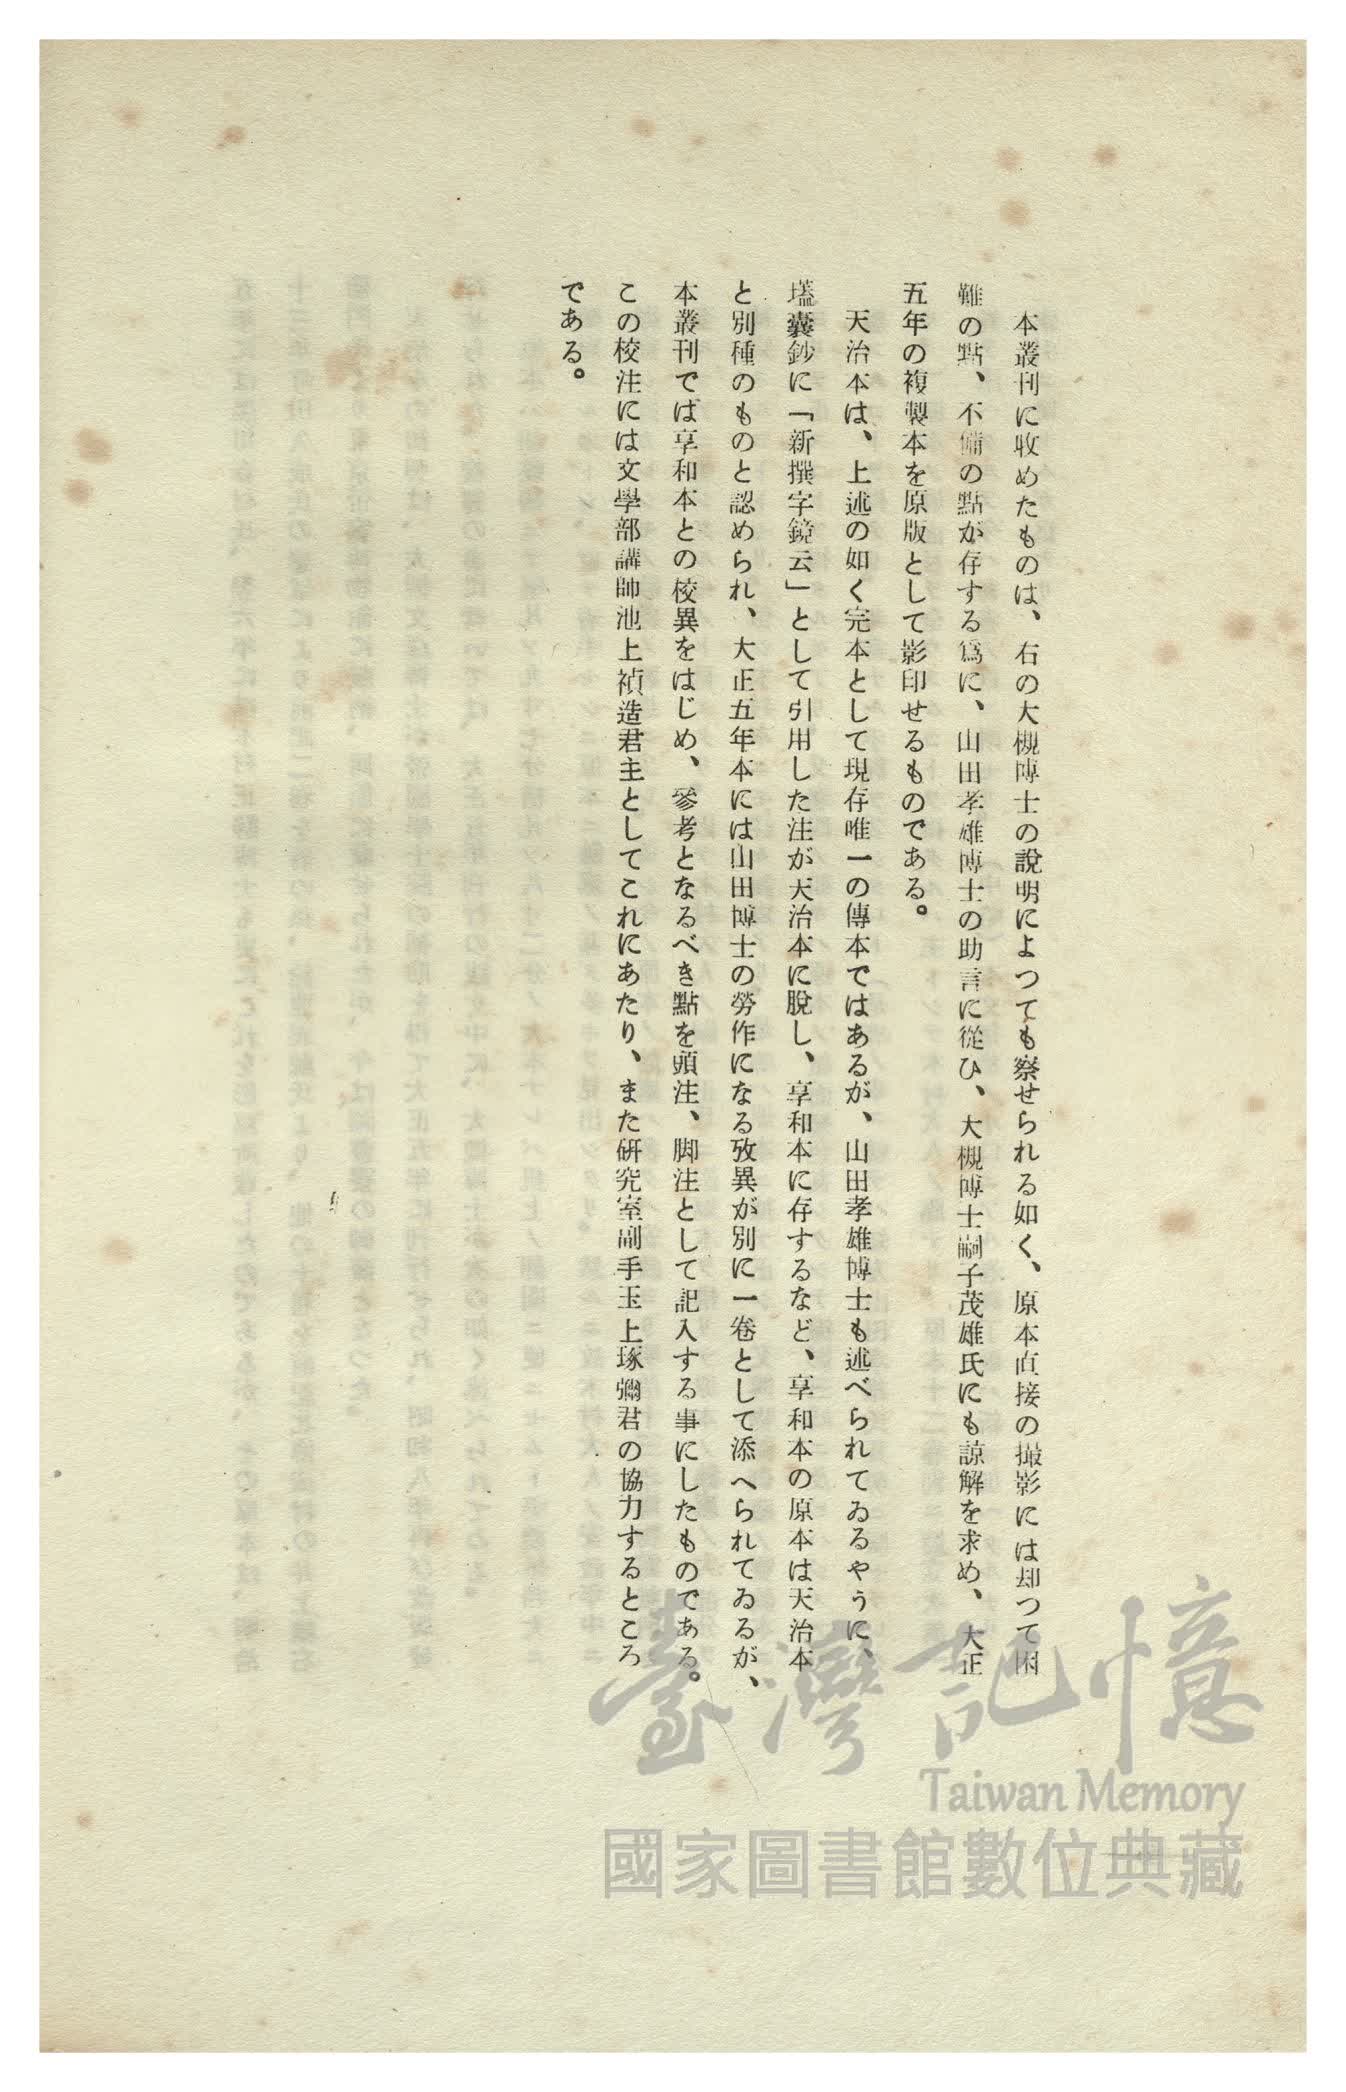 本叢刊に收めたものは、右の大槻博士の說明によつても察せられる如く、原本直接の撮影には却つて困
難の點、不備の點が存する爲に、山田孝雄博士の助言に從ひ、大槻博士嗣子茂雄氏にも諒解を求め、大正
五年の複製本を原版として影印せるものである。
天治本は、上述の如く完本として現存唯一の傳本ではあるが、山田孝雄博士も述べられてゐるやうに、
壒囊鈔に「新撰字鏡云」として引用した注が天治本に脫し、享和本に存するなど、享和本の原本は天治本
と別種のものと認められ、大正五年本には山田博士の勞作になる攷異が別に一卷として添へられてゐるが、
本叢刊では享和本との校異をはじめ、參考となるべき點を頭注、脚注として記入する事にしたものである。
この校注には文學部講師池上禎造君主としてこれにあたり、また硏究室副手玉上琢彌君の協力するところ
である。
臺灣記憶
Taiwan Memory
國家圖書館數位典藏